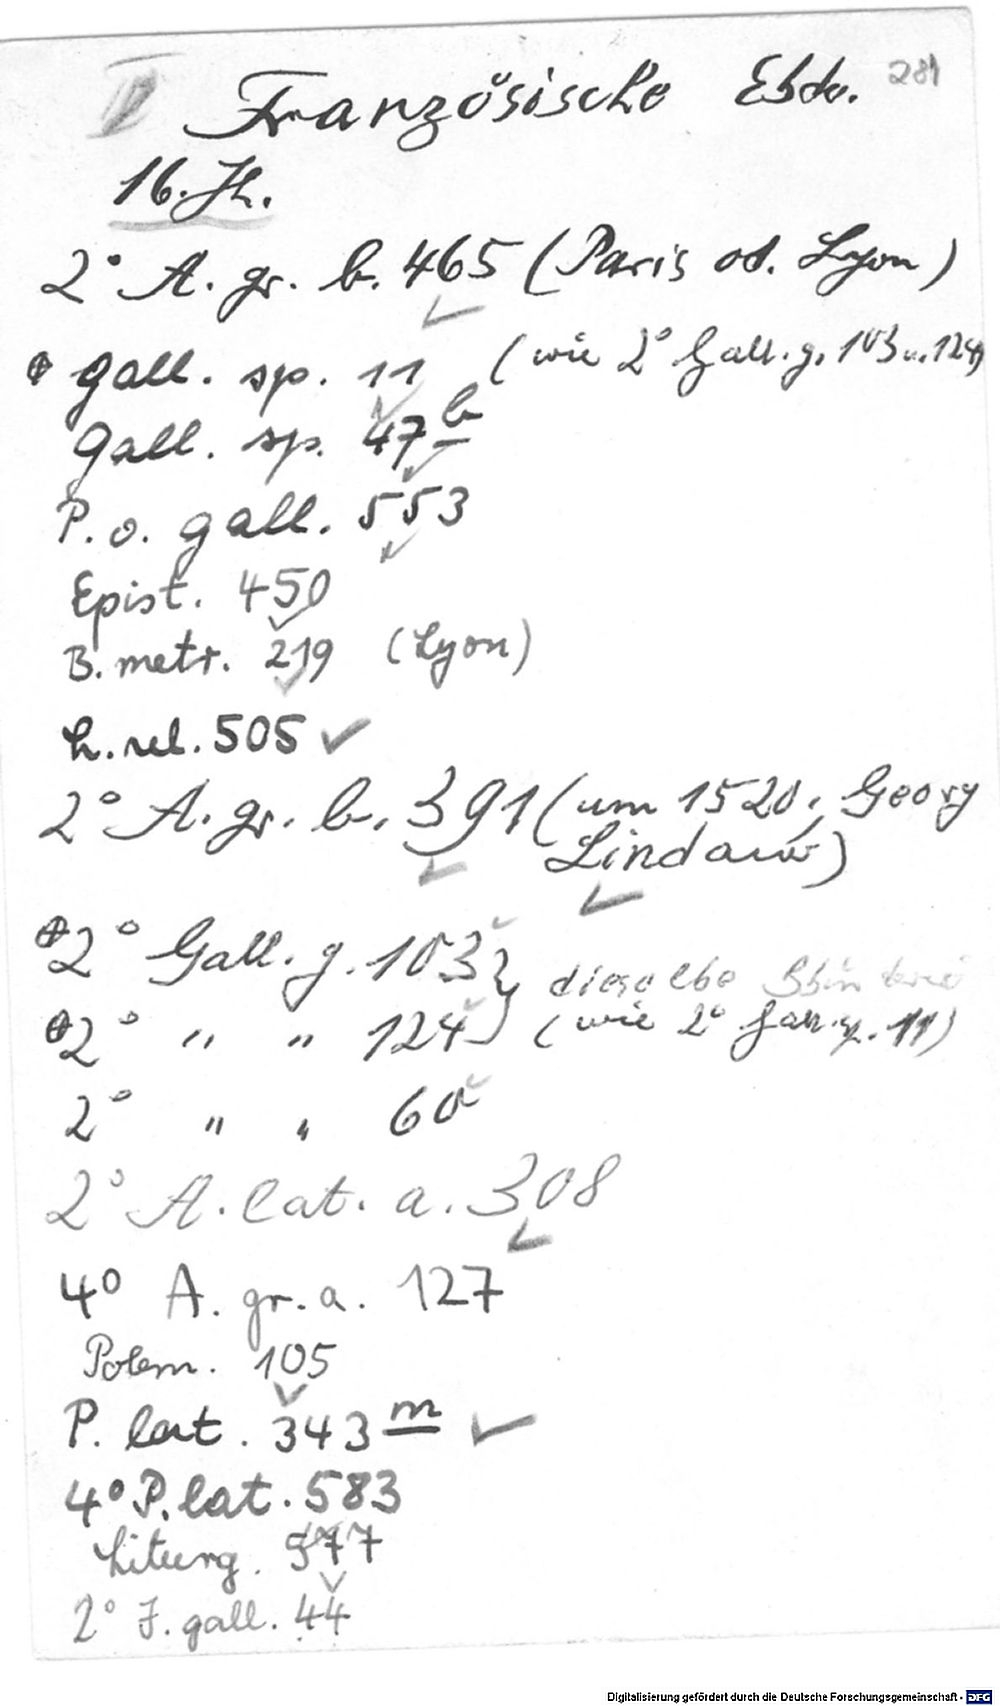 281
Französische Ebde.
16. Jh.
2° A. gr. b. 465 (Paris od. Lyon)
gall. sp. 11 (wie 2° Gall. g. 103 u. 124)
gall. sp. 47 b
P. o. gall. 553
Epist. 450
B. metr. 219 (Lyon)
h. rel. 505 ✓
2° A. gr. b. 391 (um 1520, Georg
Lindauer)
2° Gall. g. 103 } dieselbe
2° " " 124 } (wie 2° Gall. g. 11)
2° " " 60
2° A. lat. a. 308
4° A. gr. a. 127
Polem. 105
P. lat. 343 m ✓
4° P. lat. 583
Liturg. 577
2° J. gall. 44
Digitalisierung gefördert durch die Deutsche Forschungsgemeinschaft - DFG